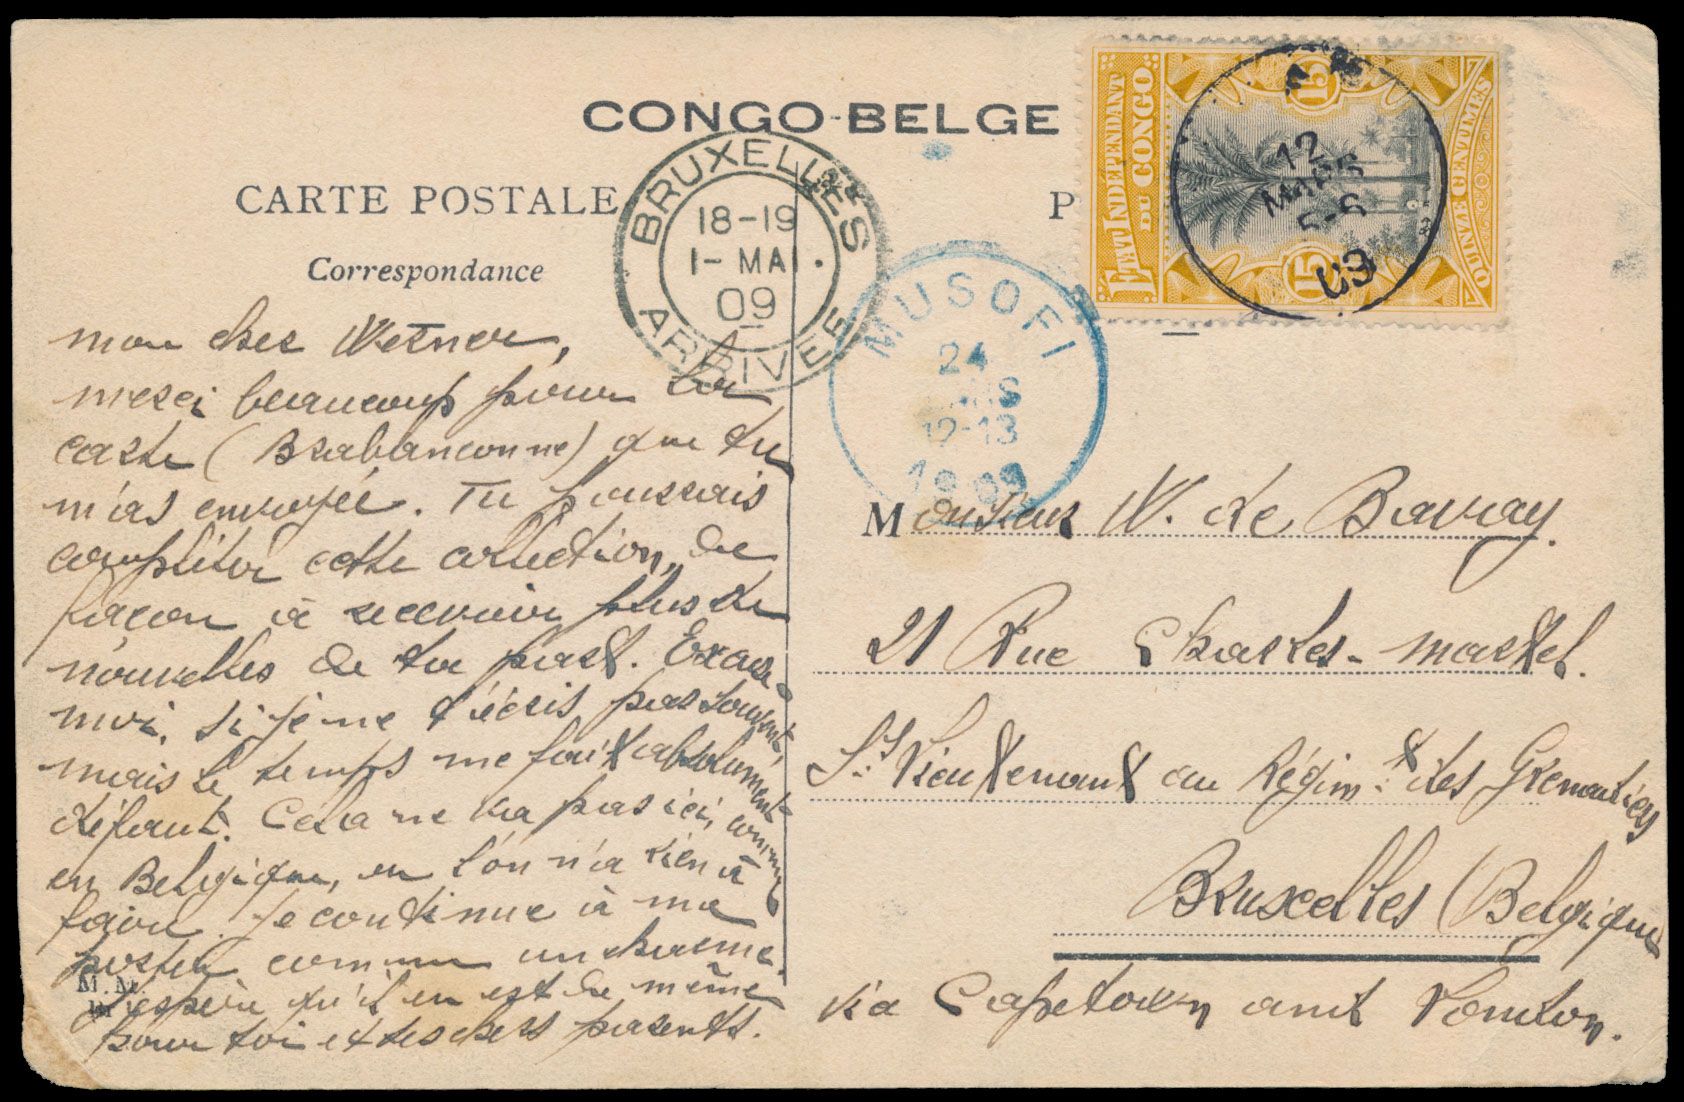 CONGO-BELGE
CARTE POSTALE
P
Correspondance
ETAT INDÉPENDANT
DU CONGO
15
15
QUINZE CENTIMES
12
MARS
5-6
09
BRUXELLES
18-19
1- MAI
09
ARRIVEE
MUSOFI
24
MARS
12-13
1909
mon cher Werner,
merci beaucoup pour la
carte (Brabançonne) que tu
m'as envoyée. Tu pourrais
compléter cette collection, de
façon à recevoir plus de
nouvelles de ta part. Excuse-
moi, si je ne t'écris pas souvent,
mais le temps me fait absolument
défaut. Cela ne va pas ici, comme
en Belgique, où l'on n'a rien à
faire. Je continue à me
porter comme un charme.
J'espère qu'il en est de même
pour toi et tes chers parents.
M.M.
Monsieur W. de Bavay.
21 Rue Charles-martel.
S/s Lieutenant au Régim.t des Grenadiers
Bruxelles (Belgique
via Capetown and London.